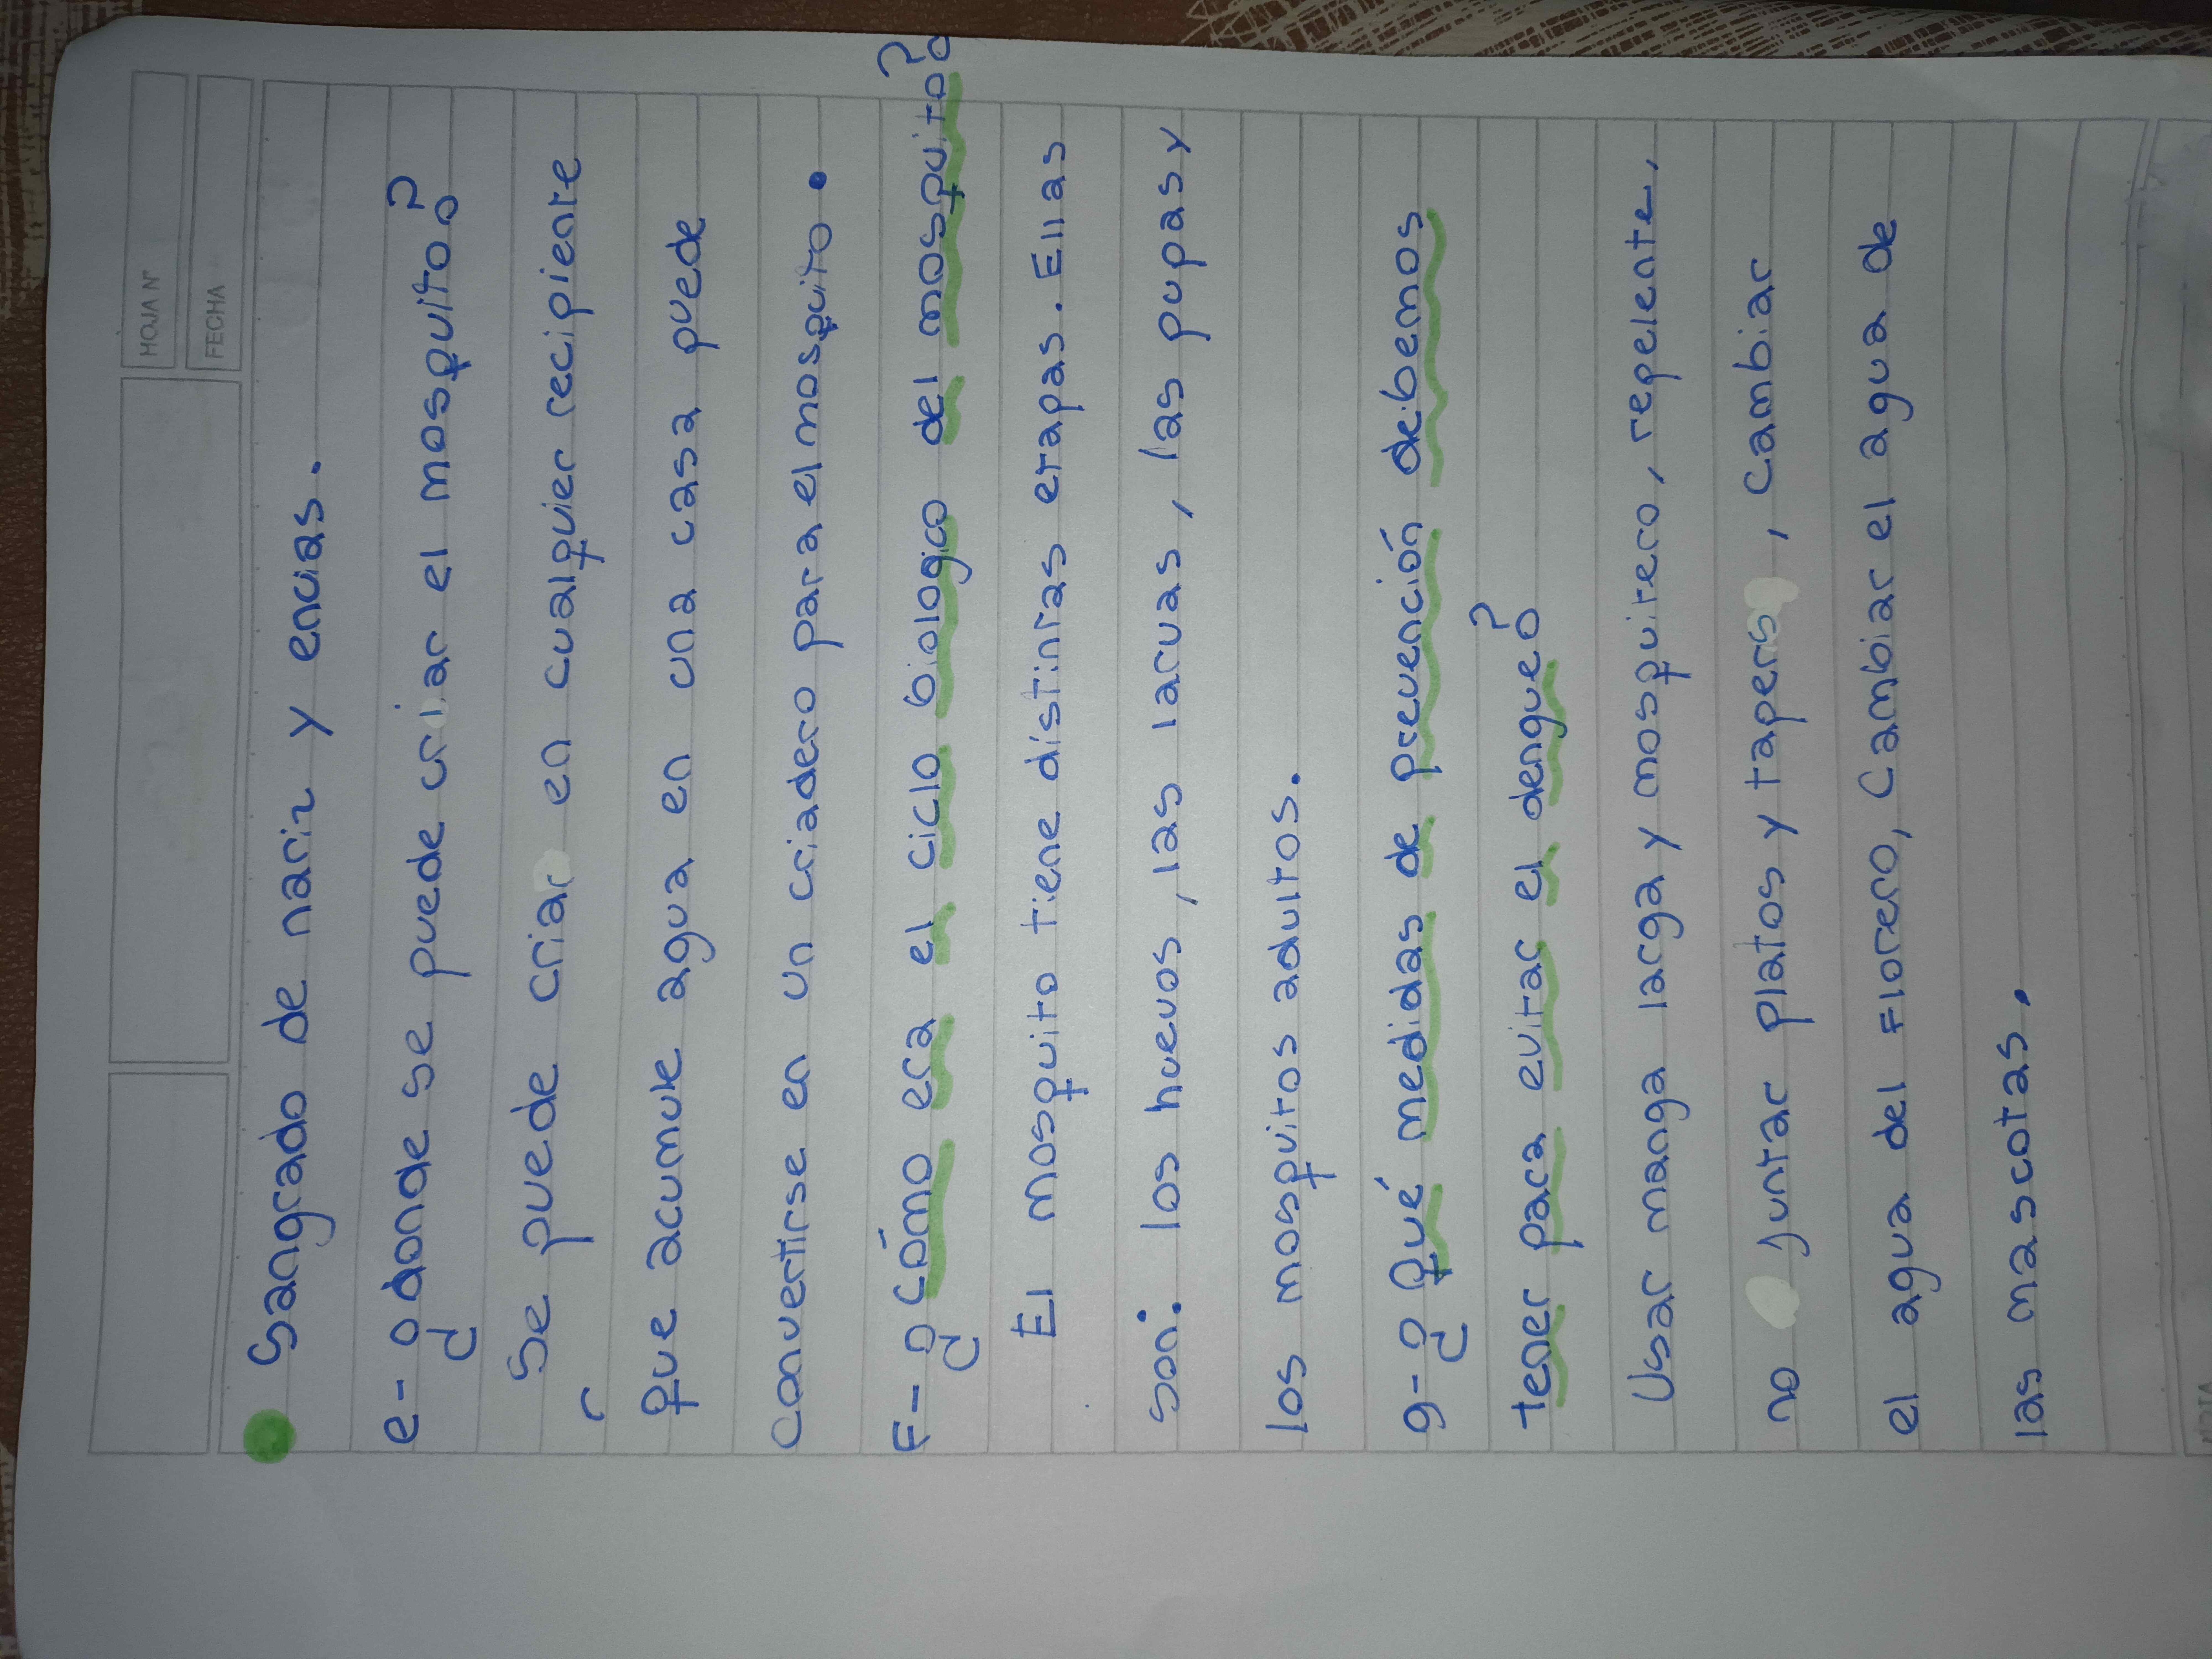 HOJA Nº
FECHA
Sangrado de nariz y encias.
e- ¿donde se puede criar el mosquito?
Se puede criar en cualquier recipiente
que acumule agua en una casa puede
convertirse en un criadero para el mosquito.
F- ¿cómo era el ciclo biologico del mosquito?
El mosquito tiene distintas etapas. Ellas
son: los huevos, las larvas, las pupas y
los mosquitos adultos.
g- ¿Qué medidas de prevención debemos
tener para evitar el dengue?
Usar manga larga y mosquitero, repelente,
no juntar platos y tapers, cambiar
el agua del Florero, Cambiar el agua de
las mascotas.